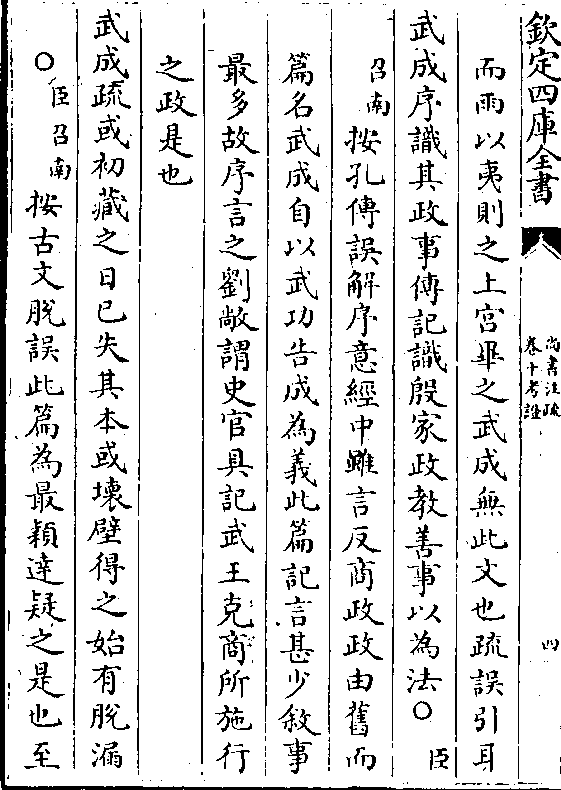 欽定四庫全書
尚書注疏
卷十考證
四
而雨以夷則之上宮畢之武成無此文也疏誤引耳
武成序識其政事傳記識殷家政教善事以為法○臣
召南按孔傳誤解序意經中雖言反商政政由舊而
篇名武成自以武功告成為義此篇記言甚少敘事
最多故序言之劉敞謂史官具記武王克商所施行
之政是也
武成疏或初藏之日已失其本或壞壁得之始有脫漏
○臣召南按古文脫誤此篇為最穎達疑之是也至